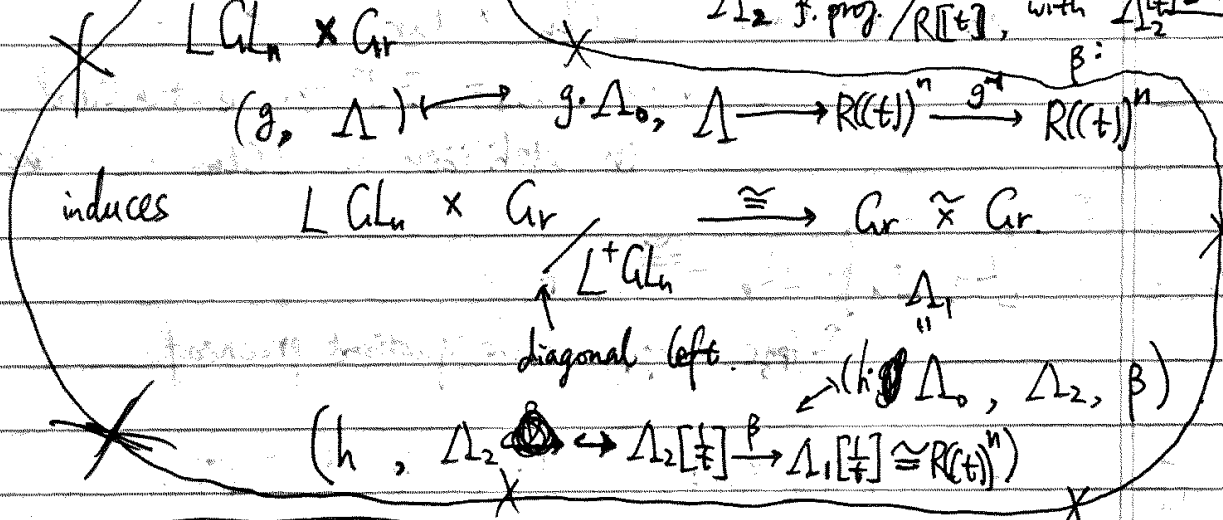 Λ₂ f. proj. / R[[t]], with Λ₂[1/t]
LGLₙ × Gr
β:
(g, Λ) ⟷ g·Λ₀, Λ ⟶ R((t))ⁿ —g⁻¹→ R((t))ⁿ
induces LGLₙ × Gr / L⁺GLₙ —≅→ Gr ×̃ Gr.
↑
diagonal left.
Λ₁
"
(h·Λ₀, Λ₂, β)
(h, Λ₂ ↪ Λ₂[1/t] —β→ Λ₁[1/t] ≅ R((t))ⁿ)